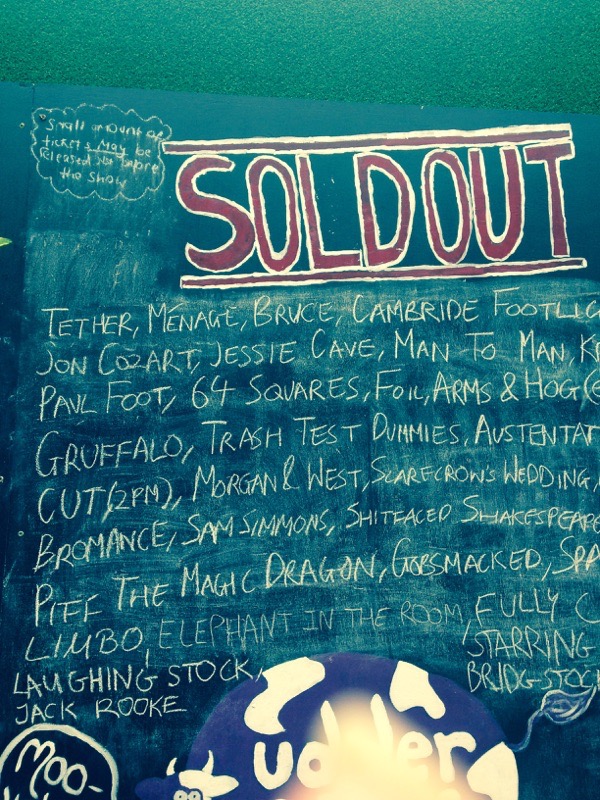 Small amount of
tickets may be
released just before
the show
SOLD OUT
TETHER, MÉNAGE, BRUCE, CAMBRIDE FOOTLIG
JON COZART, JESSIE CAVE, MAN TO MAN, K
PAUL FOOT, 64 SQUARES, FOIL, ARMS & HOG (
GRUFFALO, TRASH TEST DUMMIES, AUSTENTAT
CUT (2PM), MORGAN & WEST, SCARECROW'S WEDDING,
BROMANCE, SAM SIMMONS, SHITFACED SHAKESPEARE
PIFF THE MAGIC DRAGON, GOBSMACKED, SPA
LIMBO, ELEPHANT IN THE ROOM, FULLY C
LAUGHING STOCK, STARRING
JACK ROOKE BRIDGSTOCK
udder
Moo-